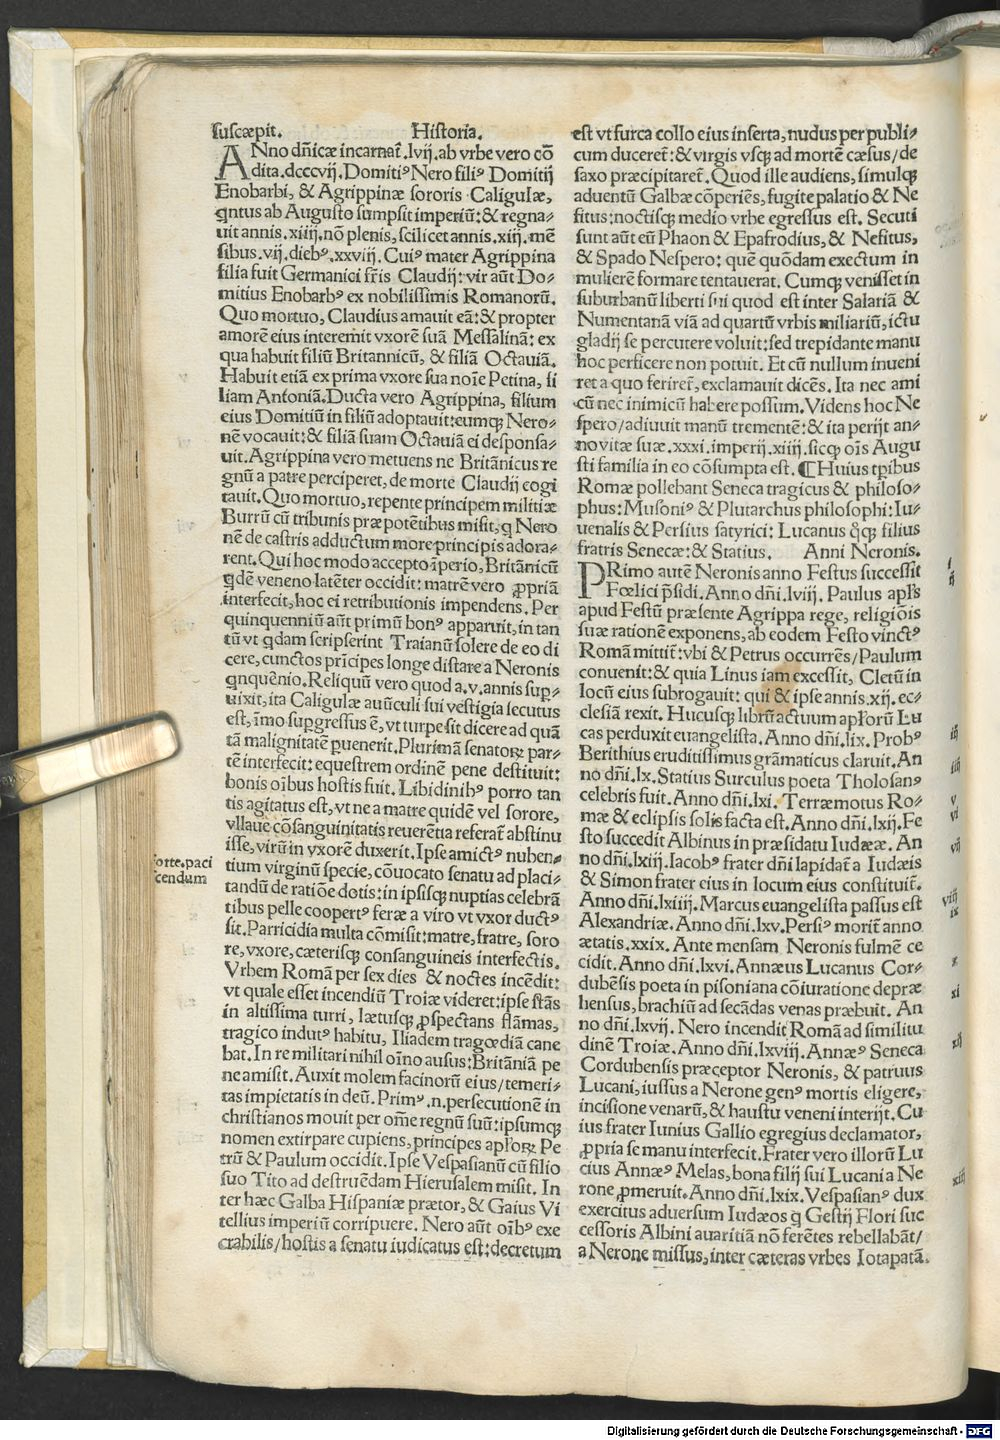 suscæpit. Historia.
ANno dñicæ incarnat̃.lvij.ab vrbe vero cõ
dita.dcccvij.Domitiꝰ Nero filiꝰ Domitij
Enobarbi, & Agrippinæ sororis Caligulæ,
qntus ab Augusto sumpsit imperiũ:& regna⸗
uit annis.xiiij.nõ plenis,scilicet annis.xiij.mẽ
sibus.vij.diebꝰ.xxviij. Cuiꝰ mater Agrippina
filia fuit Germanici fr̃is Claudij: vir aũt Do⸗
mitius Enobarbꝰ ex nobilissimis Romanorũ.
Quo mortuo, Claudius amauit eã:& propter
amorẽ eius interemit vxorẽ suã Messalinã: ex
qua habuit filiũ Britannicũ, & filiã Octauiã.
Habuit etiã ex prima vxore sua noĩe Petina, fi
liam Antoniã.Ducta vero Agrippina, filium
eius Domitiũ in filiũ adoptauit:eumqꝫ Nero⸗
nẽ vocauit:& filiã suam Octauiã ei desponsa⸗
uit.Agrippina vero metuens ne Britãnicus re
gnũ a patre perciperet, de morte Claudij cogi
tauit.Quo mortuo,repente principem militiæ
Burrũ cũ tribunis præpotẽtibus misit,q Nero
nẽ de castris adductum more principis adora⸗
rent.Qui hoc modo accepto ĩperio,Britãnicũ
qdẽ veneno latẽter occidit: matrẽ vero ꝓpriã
interfecit,hoc ei retributionis impendens. Per
quinquenniũ aũt primũ bonꝰ apparuit,in tan
tũ vt qdam scripserint Traianũ solere de eo di
cere,cunctos prĩcipes longe distare a Neronis
qnquẽnio.Reliquũ vero quod a.v.annis sup⸗
uixit,ita Caligulæ auũculi sui vestigia secutus
est,ĩmo supgressus ẽ,vt turpe sit dicere ad quã
tã malignitatẽ puenerit.Plurimã senatoꝝ par⸗
tẽ interfecit: equestrem ordinẽ pene destituit:
bonis oĩbus hostis fuit. Libidinibꝰ porro tan
tis agitatus est,vt ne a matre quidẽ vel sorore,
vllaue cõsanguinitatis reuerẽtia referat̃ abstinu
isse,virũ in vxorẽ duxerit.Ipse amictꝰ nuben⸗
tium virginũ specie,cõuocato senatu ad placi⸗
tandũ de ratiõe dotis:in ipsisqꝫ nuptias celebrã
tibus pelle coopertꝰ feræ a viro vt vxor ductꝰ
sit.Parricidia multa cõmisit:matre,fratre, soro
re,vxore,cæterisqꝫ consanguineis interfectis.
Vrbem Romã per sex dies & noctes incẽdit:
vt quale esset incendiũ Troiæ videret:ipse stãs
in altissima turri, lætusqꝫ ꝓspectans flãmas,
tragico indutꝰ habitu, Iliadem tragœdiã cane
bat.In re militari nihil oĩno ausus:Britãniã pe
ne amisit.Auxit molem facinorũ eius/temeri⸗
tas impietatis in deũ.Primꝰ.n.persecutionẽ in
christianos mouit per om̃e regnũ suũ:ipsumqꝫ
nomen extirpare cupiens,principes apl̃oꝝ Pe
trũ & Paulum occidit.Ipse Vespasianũ cũ filio
suo Tito ad destruẽdam Hierusalem misit. In
ter hæc Galba Hispaniæ prætor, & Gaius Vi
tellius imperiũ corripuere. Nero aũt oĩbꝰ exe
crabilis/hostis a senatu iudicatus est:decretum
forte.paci
scendum
est vt furca collo eius inserta,nudus per publi⸗
cum duceret̃:& virgis vsqꝫ ad mortẽ cæsus/de
saxo præcipitaret̃.Quod ille audiens,simulqꝫ
aduentũ Galbæ cõperiẽs,fugit e palatio & Ne
fitus:noctisqꝫ medio vrbe egressus est. Secuti
sunt aũt eũ Phaon & Epafrodius,& Nefitus,
& Spado Nespero: quẽ quõdam exectum in
mulierẽ formare tentauerat. Cumqꝫ venisset in
suburbanũ liberti sui quod est inter Salariã &
Numentanã viã ad quartũ vrbis miliariũ,ictu
gladij se percutere voluit:sed trepidante manu
hoc perficere non potuit. Et cũ nullum inueni
ret a quo feriret̃,exclamauit dicẽs. Ita nec ami
cũ nec inimicũ habere possum.Videns hoc Ne
spero/adiuuit manũ trementẽ:& ita perijt an⸗
no vitæ suæ.xxxi.imperij.xiiij.sicqꝫ oĩs Augu
sti familia in eo cõsumpta est.¶Huius tp̃ibus
Romæ pollebant Seneca tragicus & philoso⸗
phus:Musoniꝰ & Plutarchus philosophi:Iu⸗
uenalis & Persius satyrici: Lucanus q̃qꝫ filius
fratris Senecæ:& Statius. Anni Neronis.
PRimo autẽ Neronis anno Festus successit
Fœlici p̃sidi.Anno dñi.lviij. Paulus apl̃s
apud Festũ præsente Agrippa rege, religiõis
suæ rationẽ exponens,ab eodem Festo vinctꝰ
Romã mittit̃:vbi & Petrus occurrẽs/Paulum
conuenit:& quia Linus iam excessit, Cletũ in
locũ eius subrogauit: qui & ipse annis.xij.ec⸗
clesiã rexit. Hucusqꝫ librũ actuum apl̃orũ Lu
cas perduxit euangelista. Anno dñi.lix.Probꝰ
Berithius eruditissimus grãmaticus claruit.An
no dñi.lx.Statius Surculus poeta Tholosanꝰ
celebris fuit.Anno dñi.lxi. Terræmotus Ro⸗
mæ & eclipsis solis facta est.Anno dñi.lxij.Fe
sto succedit Albinus in præsidatu Iudææ. An
no dñi.lxiij.Iacobꝰ frater dñi lapidat̃ a Iudæis
& Simon frater eius in locum eius constituit̃.
Anno dñi.lxiiij.Marcus euangelista passus est
Alexandriæ. Anno dñi.lxv.Persiꝰ morit̃ anno
ætatis.xxix. Ante mensam Neronis fulmẽ ce
cidit.Anno dñi.lxvi.Annæus Lucanus Cor⸗
dubẽsis poeta in pisoniana cõiuratione depræ
hensus,brachiũ ad secãdas venas præbuit. An
no dñi.lxvij. Nero incendit Romã ad similitu
dinẽ Troiæ.Anno dñi.lxviij.Annæꝰ Seneca
Cordubensis præceptor Neronis, & patruus
Lucani,iussus a Nerone genꝰ mortis eligere,
incisione venarũ,& haustu veneni interijt.Cu
ius frater Iunius Gallio egregius declamator,
ꝓpria se manu interfecit.Frater vero illorũ Lu
cius Annæꝰ Melas,bona filij sui Lucani a Ne
rone ꝓmeruit.Anno dñi.lxix.Vespasianꝰ dux
exercitus aduersum Iudæos q Gestij Flori suc
cessoris Albini auaritiã nõ ferẽtes rebellabãt/
a Nerone missus,inter cæteras vrbes Iotapatã.
i
ij
iij
iiij
v
vi
vij
viij
ix
x
xi
xij
xiij
Digitalisierung gefördert durch die Deutsche Forschungsgemeinschaft - DFG